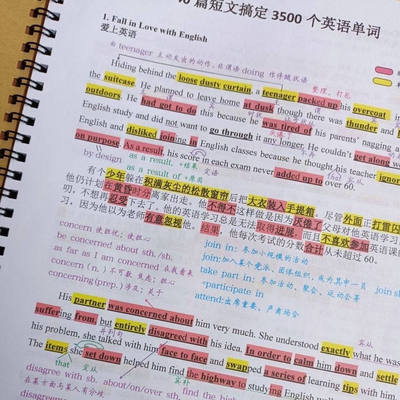 篇短文搞定 3500 个英语单词
1. Fall in Love with English
爱上英语
由 teenager 主动发出的动作，非谓语 doing 作伴随状语
整理，打包
Hiding behind the loose dusty curtain, a teenager packed up his overcoat in
the suitcase. He planned to leave home at dusk though there was thunder and
outdoors. He had got to do this because he was tired of his parents' nagging a
English study and did not want to go through it any longer. He couldn't get along
English and disliked joining in English classes because he thought his teacher ignor
on purpose. As a result, his score in each exam never added up to over 60.
by design
as a result of +原因
有个少年躲在积满灰尘的松散窗帘后把大衣装入手提箱。尽管外面正打雷闪
他仍计划在黄昏时分离家出走。他不得不这样做是因为厌倦了父母对他英语学习
叨，不想再忍受下去了。他的英语学习总是无法取得进展，而且不喜欢参加英语课
习。因为他以为老师有意忽视他。结果，他每次考试的分数合计从未超过 60。
concern 使担忧；使担心
be concerned about sth./sb.
as far as I am concerned 在我看来
concern (n.) 不可数 焦虑；担心
concerning (prep.) 涉及；关于
join in: 参加小规模的活动
join: 加入某个党派、团体组织，成为其中一员
take part in: 参加活动，聚会，运动会等
*participate in
attend: 出席重要、严肃场合
His partner was concerned about him very much. She understood exactly what he was
suffering from, but entirely disagreed with his idea. In order to calm him down and settle
his problem, she talked with him face to face and swapped a series of learning tips with him.
The items she set down helped him find the highway to studying English well
that
宾从
disagree with sb. about/on/over sth.
在某方面与某人有分歧